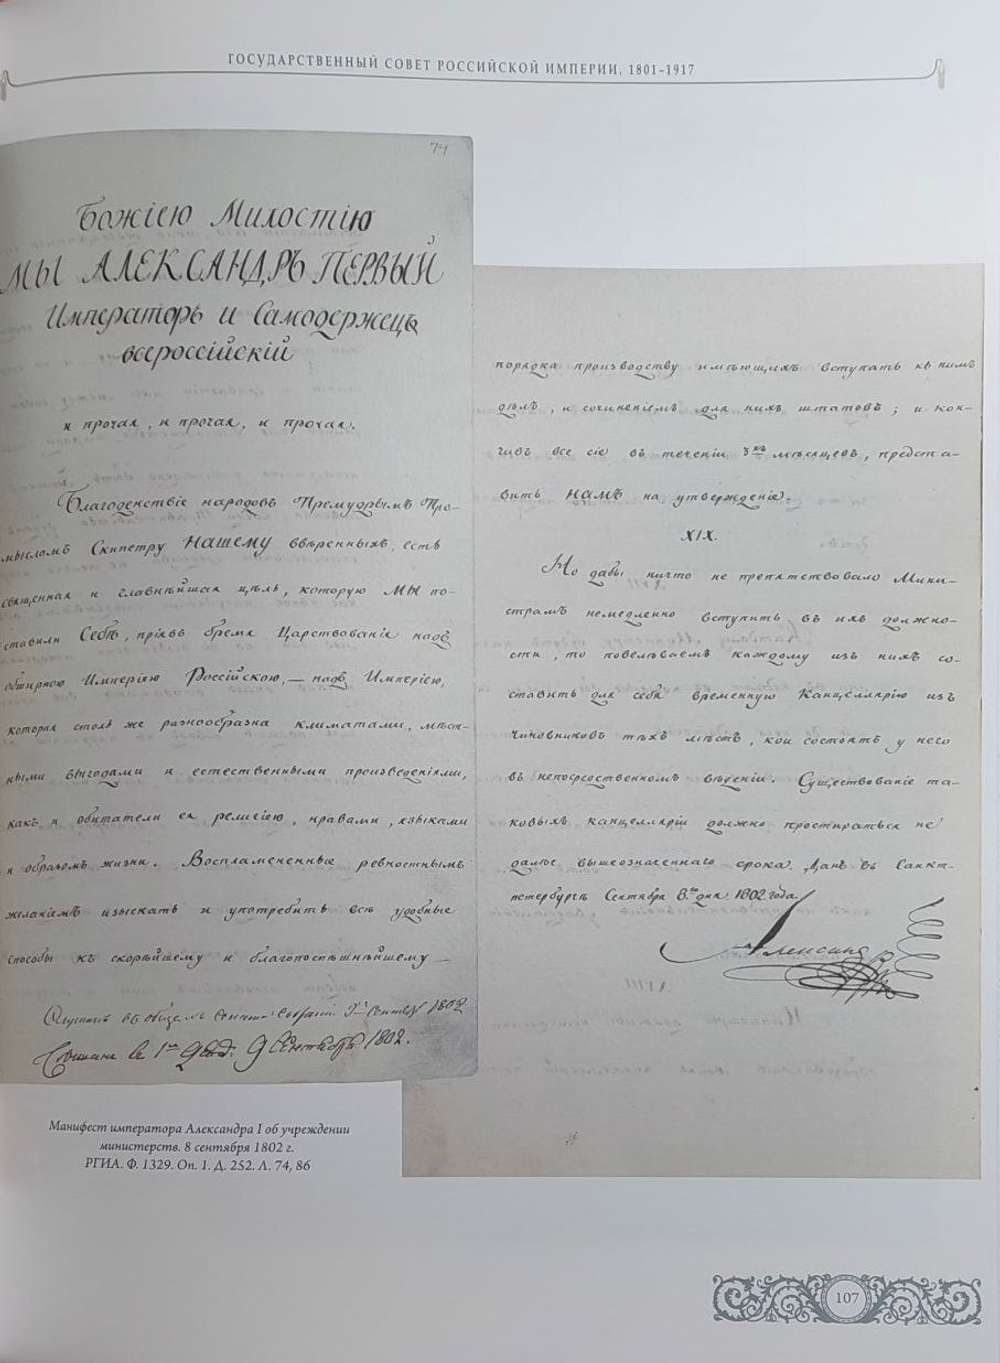 ГОСУДАРСТВЕННЫЙ СОВЕТ РОССИЙСКОЙ ИМПЕРИИ. 1801–1917
74
Божіею Милостію
МЫ АЛЕКСАНДРЪ ПЕРВЫЙ
Императоръ и Самодержецъ
всероссійскій
и прочая, и прочая, и прочая.
Благоденствіе народовъ Премудрымъ Про-
мысломъ Скипетру НАШЕМУ ввѣренныхъ, есть
священная и главнѣйшая цѣль, которую МЫ по-
ставили Себѣ, пріявъ бремя Царствованія надъ
обширною Имперіею Россійскою, — надъ Имперіею,
которая столь же разнообразна климатами, мѣст-
ными выгодами и естественными произведеніями,
какъ и обитатели ея религіею, нравами, языками
и образомъ жизни. Воспламененные ревностнымъ
желаніемъ изыскать и употребить всѣ удобные
способы къ скорѣйшему и благопоспѣшнѣйшему —
Слушанъ въ общемъ сената собраніи 9го Сентября 1802
Слушанъ въ 1мъ 9 Сентября 1802.
порядка производству имѣющихъ вступать къ нимъ
дѣлъ, и сочиненіемъ для нихъ штатовъ; и кон-
чивъ все сіе въ теченіи 3хъ мѣсяцевъ, предста-
вить НАМЪ на утвержденіе.
XIX.
Но дабы ничто не препятствовало Мини-
страмъ немедленно вступить въ ихъ должно-
сти, то повелѣваемъ каждому изъ нихъ со-
ставить для себя временную Канцеллярію изъ
чиновниковъ тѣхъ мѣстъ, кои состоятъ у него
въ непосредственномъ вѣденіи. Существованіе та-
ковыхъ канцеллярій должно простираться не
далѣе вышеозначеннаго срока. Данъ въ Санкт-
петербургѣ Сентября 8го дня 1802 года.
Александръ
XVIII
Манифест императора Александра I об учреждении
министерств. 8 сентября 1802 г.
РГИА. Ф. 1329. Оп. 1. Д. 252. Л. 74, 86
107